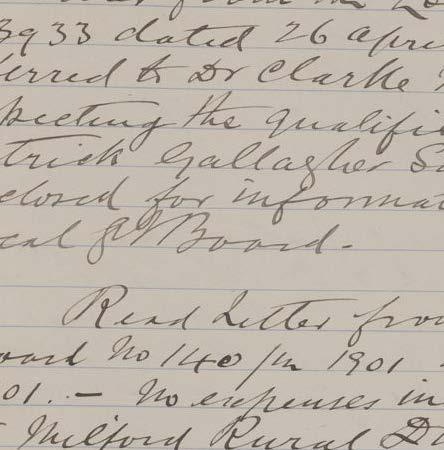 3933 dated 26 Apri
erred to Dr Clarke
pecting the qualifi
trick Gallagher S
closed for informa
cal Gt Board.-
Read Letter fro
oard No 140/m 1901
01. - No expenses in
Milford Rural D